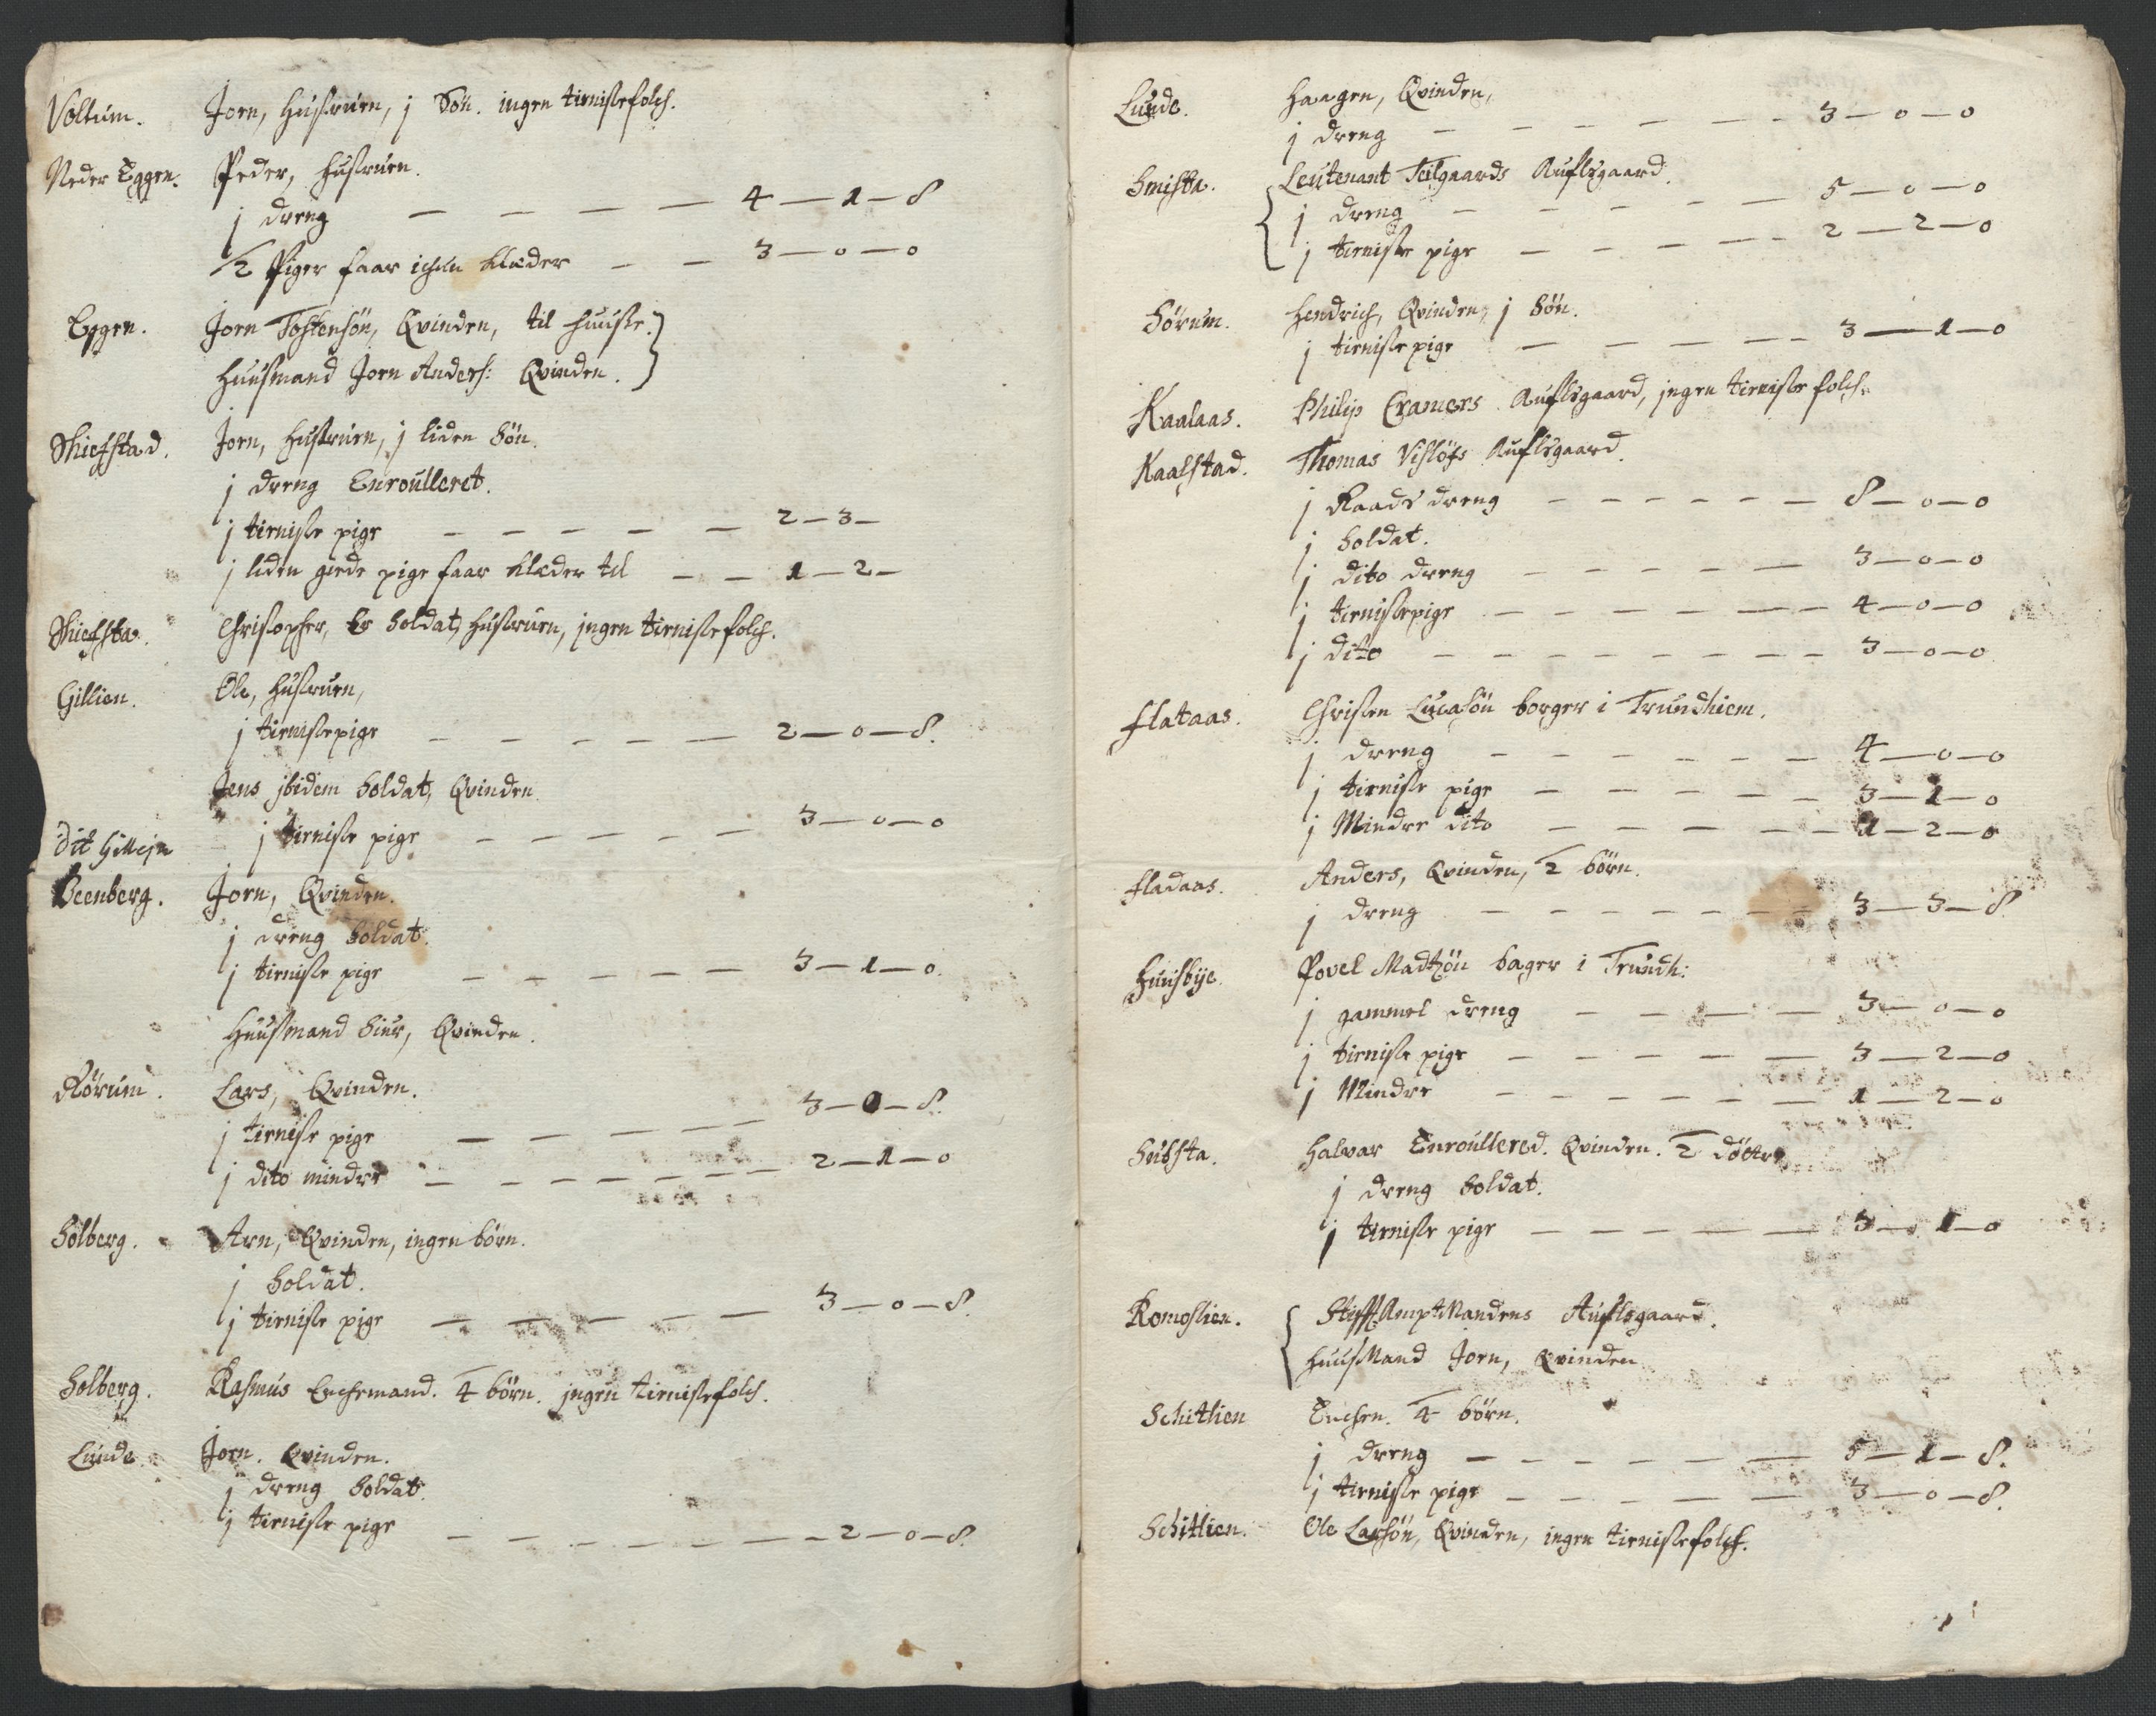 Voltum. Jorn, Hustruen, j Søn. ingen tienistefolch.
Neder Eggen. Peder, Hustruen.
j dreng — — — — 4 — 1 — 8
2 Piger faar ichun Klæder — — 3 — 0 — 0
Eggen. Jorn Tostensøn, Qvinden, til Huuse.
Huusmand Jorn Anders: Qvinden.
Skiefstad. Jorn, Hustruen, j liden Søn.
j dreng Enroulleret.
j tieniste pige — — — — — 2 — 3 —
j liden giede pige faar Klæder til — — 1 — 2 —
Skiefsta. Christopher, Er Soldat, Hustruen, jngen tienistefolch.
Gillien. Ole, Hustruen,
j tienistepige — — — — — 2 — 0 — 8.
Jens jbidem Soldat, Qvinden.
dit Gillejn j tieniste pige — — — — — 3 — 0 — 0
Beenberg. Jorn, Qvinden.
j dreng Soldat.
j tieniste pige — — — — — 3 — 1 — 0.
Huusmand Siur, Qvinden.
Rørum. Lars, Qvinden.
j tieniste pige — — — — — 3 — 0 — 8.
j dito mindre — — — — — — 2 — 1 — 0
Solberg. Arn, Qvinden, ingen børn.
j Soldat.
j tieniste pige — — — — — 3 — 0 — 8.
Solberg. Rasmus Enchemand. 4 børn. jngen tienistefolch.
Lunde. Jorn. Qvinden.
j dreng Soldat.
j tieniste pige — — — — — — 2 — 0 — 8.
Lunde. Haagen, Qvinden,
j dreng — — — — — — 3 — 0 — 0
Smista. Leutenant Teilgaards Auflsgaard.
j dreng — — — — — 5 — 0 — 0
j tieniste pige — — — — — 2 — 2 — 0
Sørum. Hendrich, Qvinden, j Søn.
j tieniste pige — — — — — 3 — 1 — 0
Kaalaas. Philip Cramers Auflsgaard, jngen tieniste folch.
Kaalstad. Thomas Visløfs Auflsgaard.
j Raads dreng — — — — — — 8 — 0 — 0
j Soldat.
j dito dreng — — — — — 3 — 0 — 0
j tienistepige — — — — — — 4 — 0 — 0
j dito — — — — — — — — 3 — 0 — 0
Flataas. Christen Lucasøn borger i Trundhiem.
j dreng — — — — — — 4 — 0 — 0
j tieniste pige — — — — — 3 — 1 — 0
j Mindre dito — — — — — 1 — 2 — 0
Fladaas. Anders, Qvinden, 2 børn.
j dreng — — — — — — — 3 — 3 — 8.
Huusbye. Povel Madtzøn bager i Trundh:
j gammel dreng — — — — 3 — 0 — 0
j tieniste pige — — — — — 3 — 2 — 0
j Mindre — — — — — — 1 — 2 — 0
Hubsta. Halvar Enroullered. Qvinden. 2 døttre
j dreng Soldat.
j tieniste pige — — — — — 3 — 1 — 0
Romoslien. Stifft Ampt Mandens Auflsgaard.
Huus Mand Jorn, Qvinden
Schitlien Enchen. 4 børn.
j dreng — — — — — — 5 — 1 — 8.
j tieniste pige — — — — — 3 — 0 — 8.
Schitlien. Ole Larsøn, Qvinden, ingen tienistefolch.